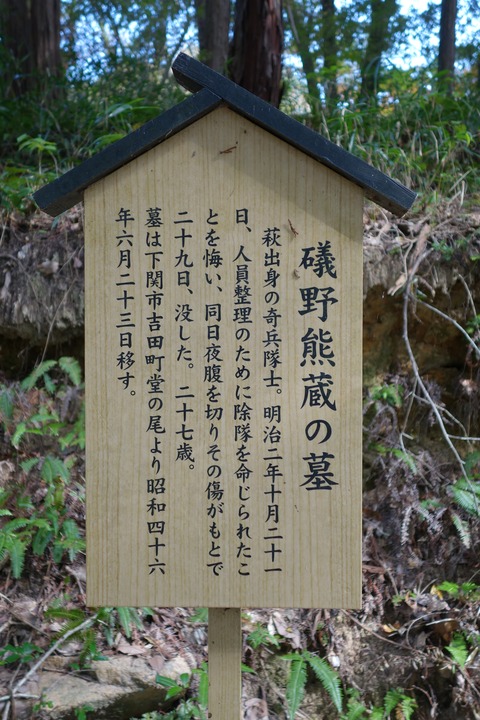 礒野熊蔵の墓
萩出身の奇兵隊士。明治二年十月二十一
日、人員整理のために除隊を命じられたこ
とを悔い、同日夜腹を切りその傷がもとで
二十九日、没した。二十七歳。
墓は下関市吉田町堂の尾より昭和四十六
年六月二十三日移す。